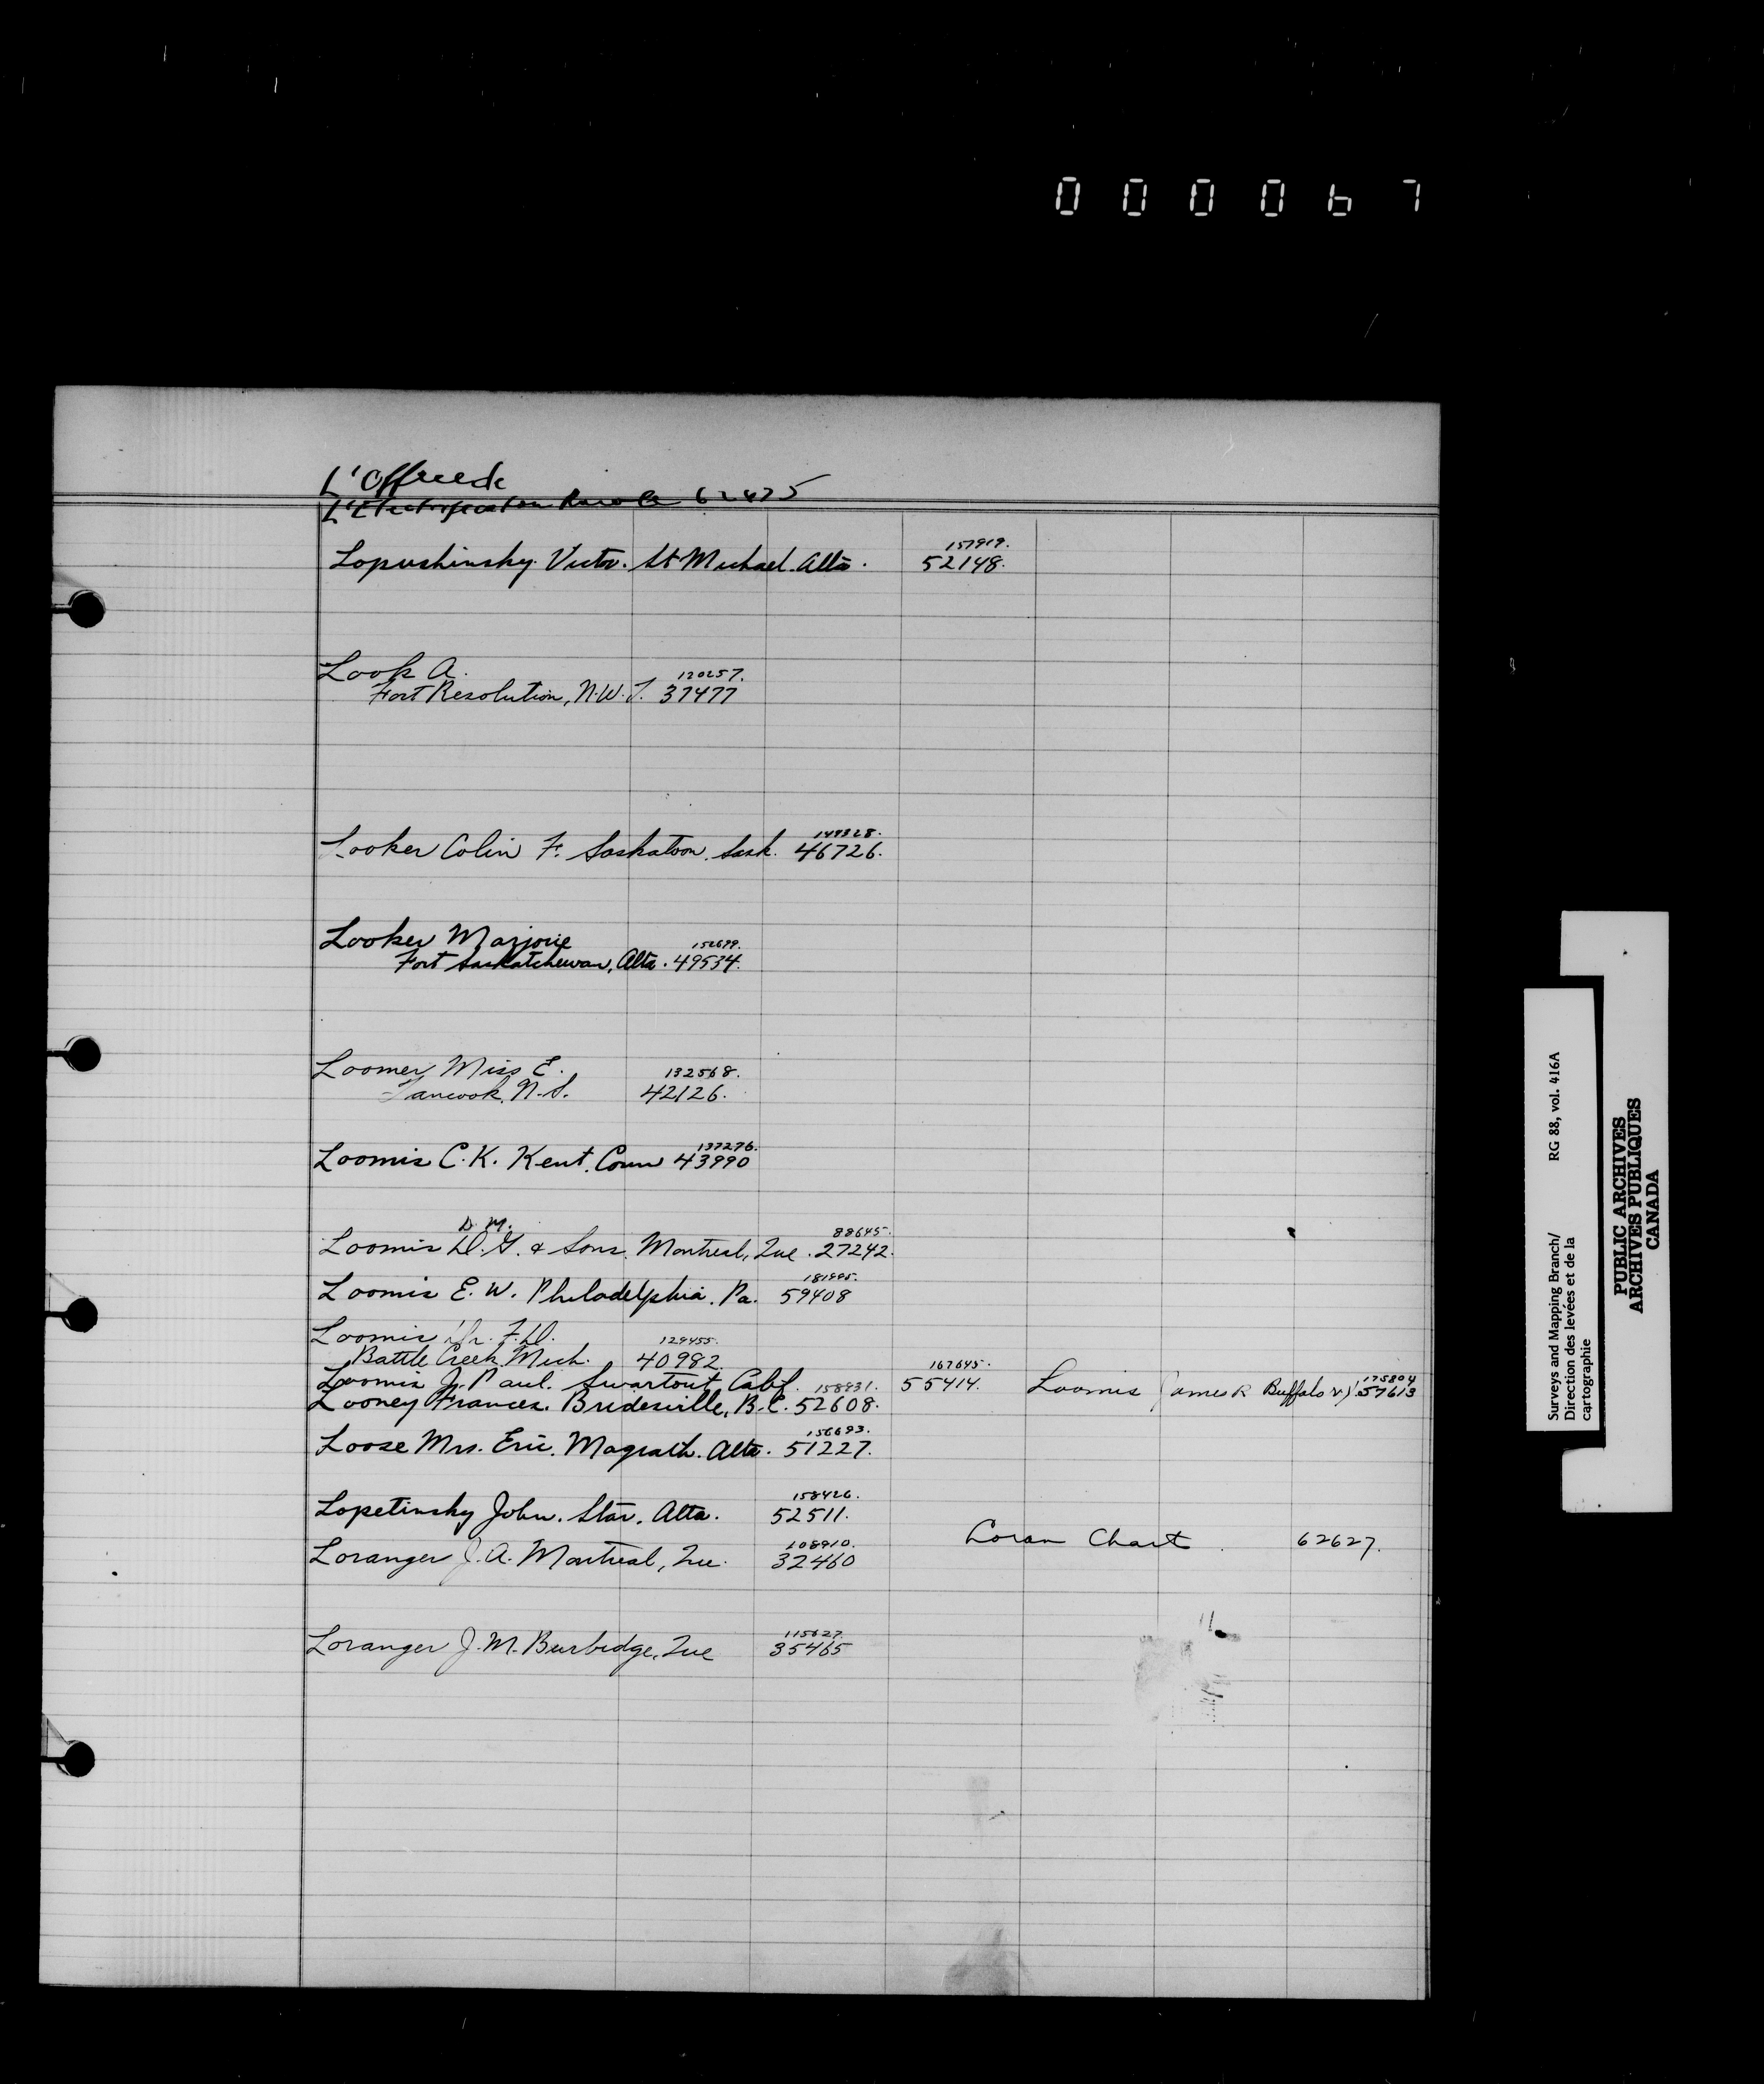 0 0 0 0 6 7
L'Office de
L'Electrification Rurale 62475
157919.
Lopushinsky Victor. St Michael. Alta. 52148.
Look A. 120257.
Fort Resolution, N.W.T. 37477
149328.
Looker Colin F. Saskatoon, Sask. 46726.
Looker Marjorie 152699.
Fort Saskatchewan, Alta. 49534.
Loomer Miss E. 132568.
Tancook, N.S. 42126.
137276.
Loomis C.K. Kent, Conn 43990
D. M. 88645.
Loomis D.G. & Sons, Montreal, Que. 27242.
181995.
Loomis E. W. Philadelphia, Pa. 59408
Loomis Dr. F.D. 129455.
Battle Creek, Mich. 40982.
167645. 175804
Loomis J. Paul. Swartout, Calif. 55414. Loomis James R Buffalo 57613
158931.
Looney Frances. Bridesville, B.C. 52608.
156693.
Loose Mrs. Eric. Magrath. Alta. 51227.
158426.
Lopetinsky John. Star, Alta. 52511.
Loran Chart. 62627.
108910.
Loranger J.A. Montreal, Que. 32460
115627.
Loranger J.M. Burbidge, Que 35465
Surveys and Mapping Branch/ RG 88, vol. 416A
Direction des levées et de la
cartographie
PUBLIC ARCHIVES
ARCHIVES PUBLIQUES
CANADA